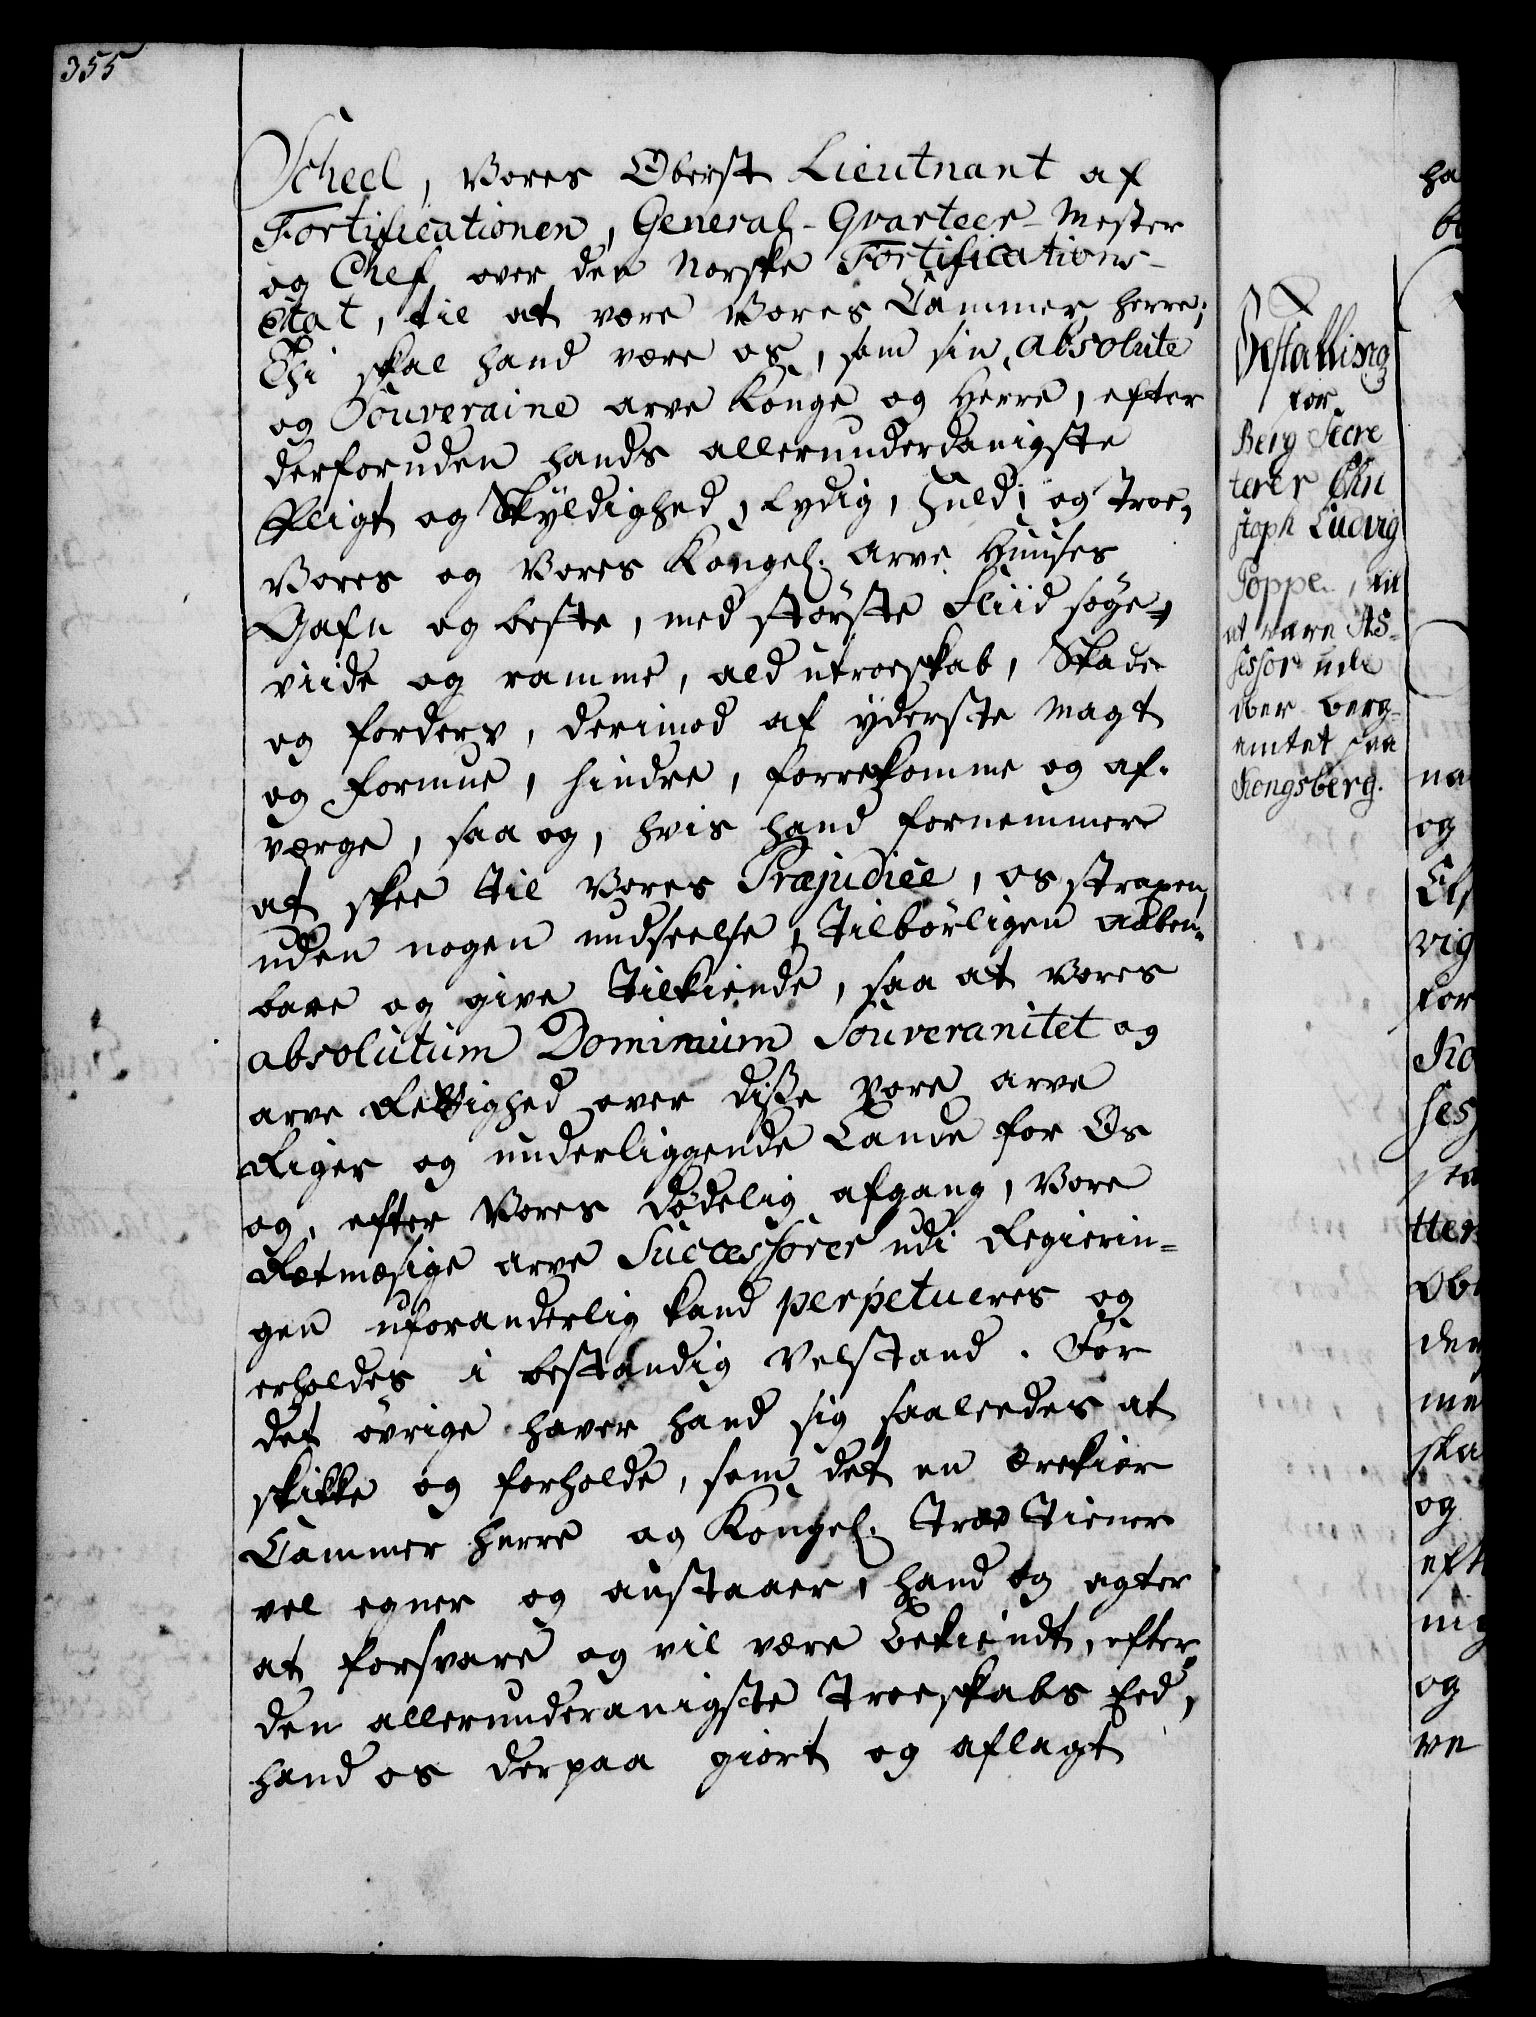 355
Scheel, Vores Oberst Lieutnant af
Fortificationen, General-Qvarteer-Mester
og Chef over den Norske Fortifications-
Etat, til at være Vores Cammer Herre;
Thi skal hand være os, som sin absolute
og Souveraine arve Konge og Herre, efter
derforuden hands allerunderdanigste
Pligt og Skÿldighed, lydig, huld, og troe,
Vores og Vores Kongel. Arve Huuses
Gafn og beste, med störste Fliid söge,
viide og ramme, ald utroeskab, Skade
og forderv, derimod af ÿderste Magt
og Formue, hindre, forrekomme og af-
værge, saa og, hvis hand fornemmer
at skee til Vores Præjudice, os straxen,
uden nogen undseelse, tilbörligen aaben-
bare og give tilkiende, saa at Vores
absolutum Dominium Souveranitet og
arve Rettighed over disse Vore arve
Riger og underliggende Lande for Os
og, efter Vores dödelig afgang, Vore
Retmæsige arve Successorer udi Regierin-
gen uforanderlig kand perpetueres og
erholdes i bestandig Velstand. For
det övrige haver hand sig saaledes at
skikke og forholde, som det en ærekier
Cammer Herre og Kongel. troe Tiener
vel egner og anstaaer, hand og agter
at forsvare og vil være bekiendt, efter
den allerunderanigste Troeskabs Eed,
hand os derpaa giort og aflagt
Bestalling
for
Berg Secre
terer Chri
stoph Ludvig
Poppe, til
at være As-
sessor udi
over berg-
amtet paa
Kongsberg.
ha
na
og
vig
for
Ko
ses
tter
der
me
ska
og
eft
nig
og
ve